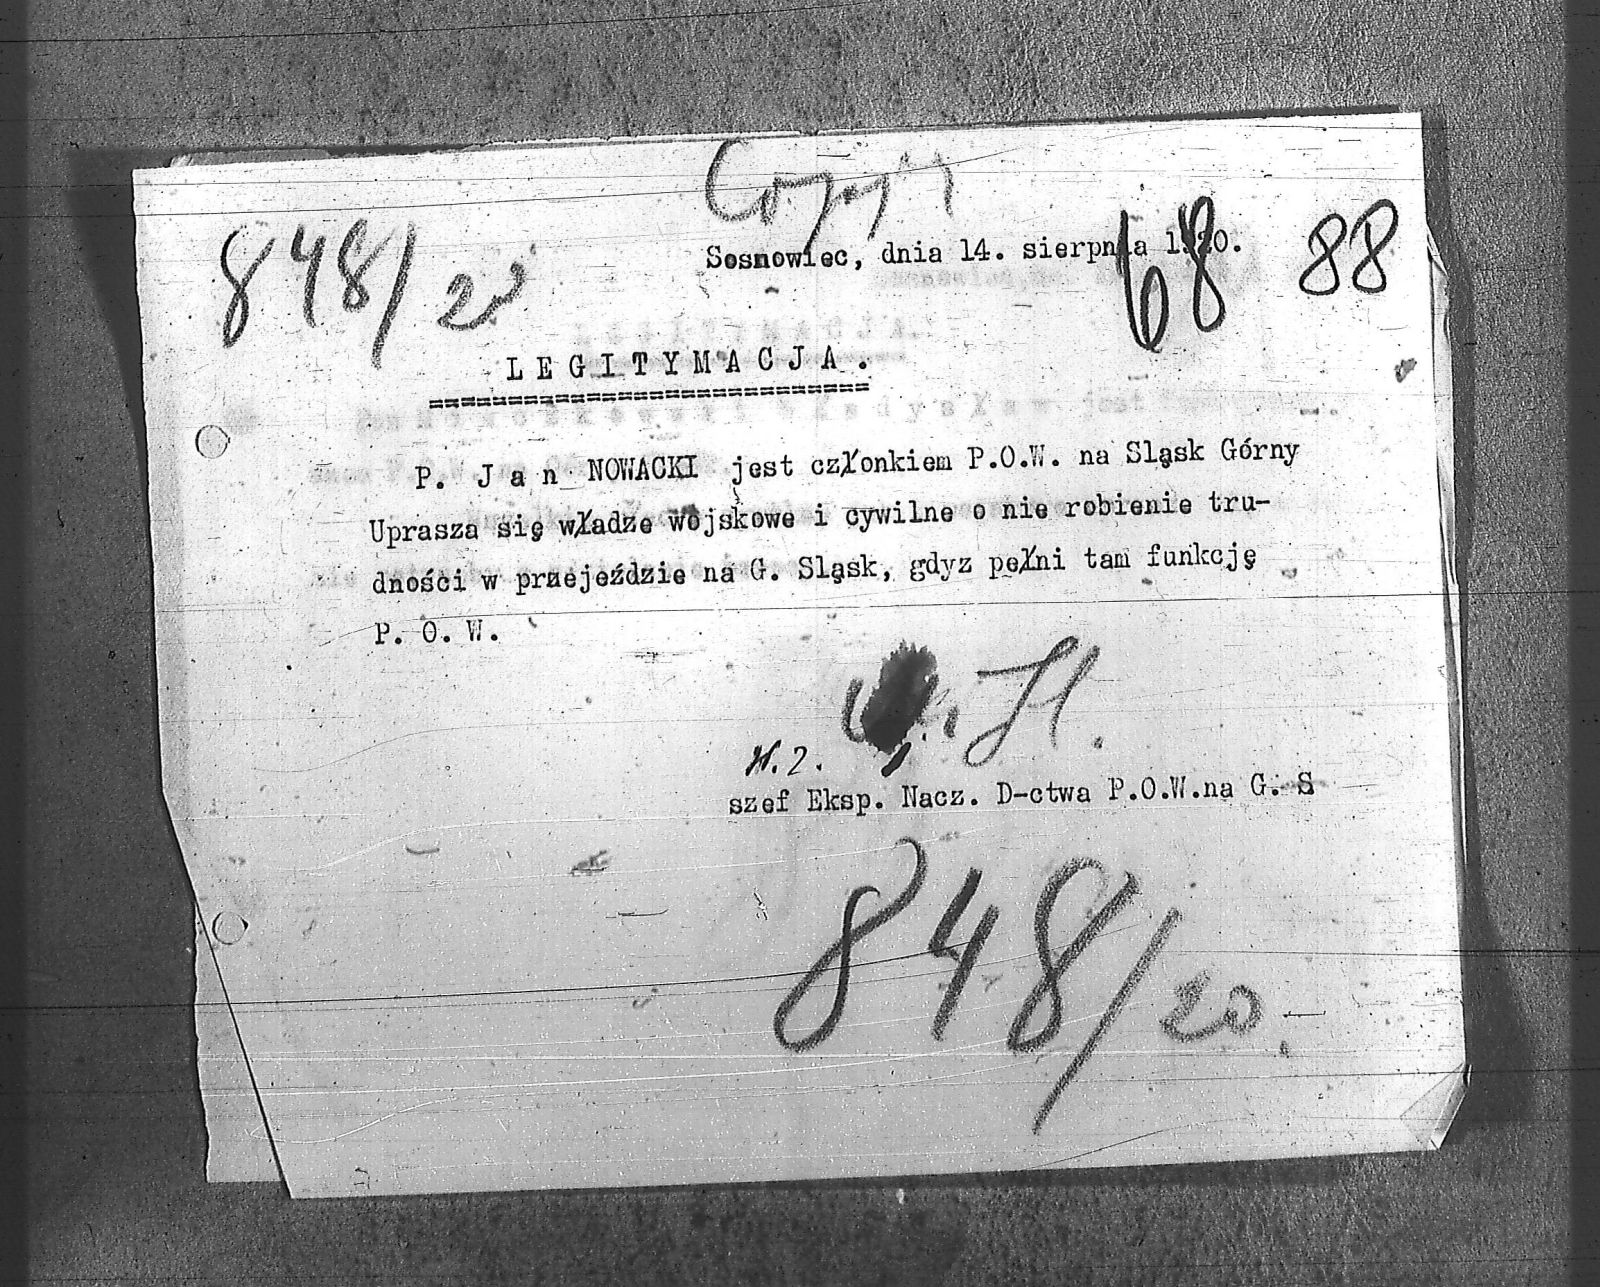 848/20
68 88
Sosnowiec, dnia 14. sierpnia 1920.
LEGITYMACJA.
P. Jan NOWACKI jest członkiem P.O.W. na Sląsk Górny
Uprasza się władze wojskowe i cywilne o nie robienie tru-
dności w przejeździe na G. Sląsk, gdyz pełni tam funkcję
P. O. W.
szef Eksp. Nacz. D-ctwa P.O.W.na G. S
848/20